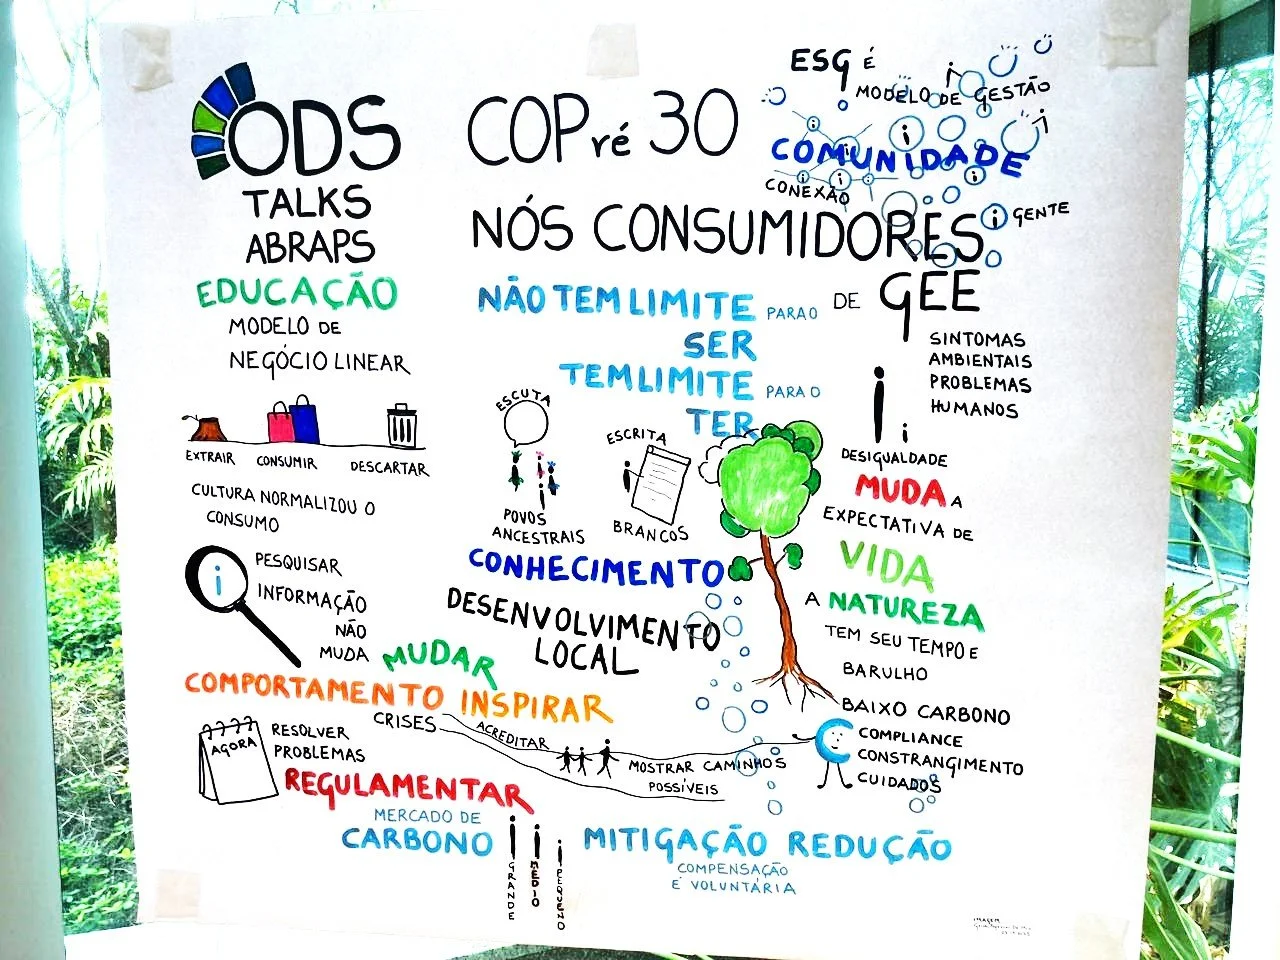 ODS
TALKS
ABRAPS
EDUCAÇÃO
MODELO DE
NEGÓCIO LINEAR
EXTRAIR CONSUMIR DESCARTAR
CULTURA NORMALIZOU O
CONSUMO
i
PESQUISAR
INFORMAÇÃO
NÃO
MUDA
MUDAR
COMPORTAMENTO INSPIRAR
AGORA
RESOLVER
PROBLEMAS
CRISES
ACREDITAR
MOSTRAR CAMINHOS
POSSÍVEIS
REGULAMENTAR
MERCADO DE
CARBONO
GRANDE
MÉDIO
PEQUENO
COPré 30
NÓS CONSUMIDORES
DE GEE
NÃO TEM LIMITE PARA O
SER
TEM LIMITE PARA O
TER
ESCUTA
POVOS
ANCESTRAIS
ESCRITA
BRANCOS
CONHECIMENTO
DESENVOLVIMENTO
LOCAL
ESG É
MODELO DE GESTÃO
COMUNIDADE
CONEXÃO
i GENTE
SINTOMAS
AMBIENTAIS
PROBLEMAS
HUMANOS
DESIGUALDADE
MUDA A
EXPECTATIVA DE
VIDA
A NATUREZA
TEM SEU TEMPO E
BARULHO
BAIXO CARBONO
COMPLIANCE
CONSTRANGIMENTO
CUIDADOS
MITIGAÇÃO REDUÇÃO
COMPENSAÇÃO
É VOLUNTÁRIA
IMAGEM